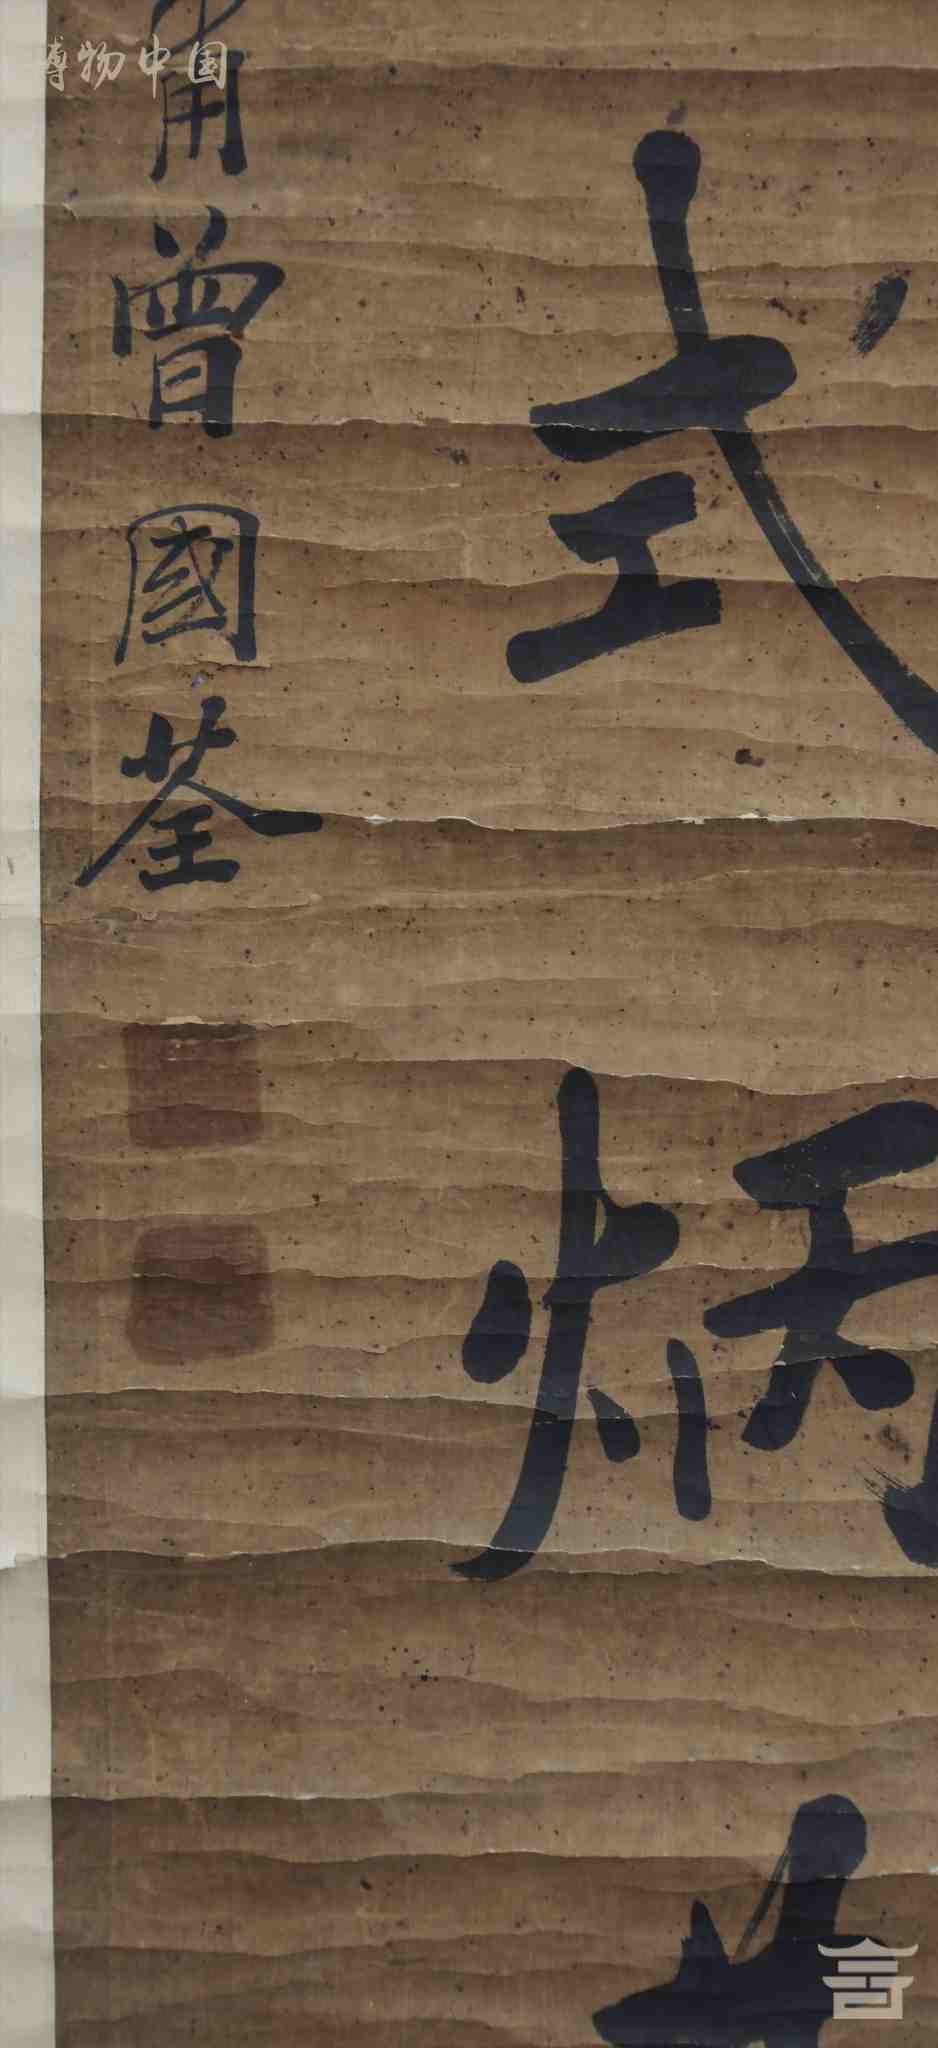 博物中国
式炳
甫曾國荃